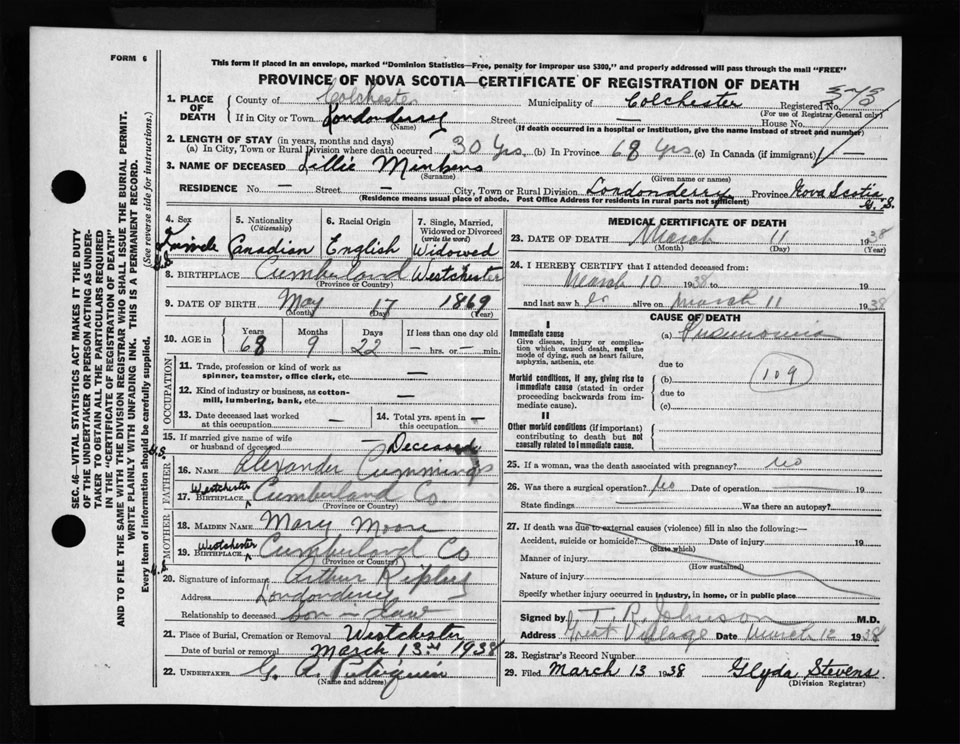 FORM 6
This form if placed in an envelope, marked "Dominion Statistics—Free, penalty for improper use $300," and properly addressed will pass through the mail "FREE"
PROVINCE OF NOVA SCOTIA—CERTIFICATE OF REGISTRATION OF DEATH
1. PLACE OF DEATH
County of Colchester Municipality of Colchester Registered No. 373
(For use of Registrar General only)
If in City or Town Londonderry Street — House No.
(Name) (If death occurred in a hospital or institution, give the name instead of street and number)
2. LENGTH OF STAY (in years, months and days)
(a) In City, Town or Rural Division where death occurred 30 Yrs. (b) In Province 68 Yrs (c) In Canada (if immigrant) —
3. NAME OF DECEASED Lillie
(Surname) (Given name or names)
RESIDENCE No. — Street — City, Town or Rural Division Londonderry Province Nova Scotia
(Residence means usual place of abode. Post Office Address for residents in rural parts not sufficient)
4. Sex 5. Nationality 6. Racial Origin 7. Single, Married, Widowed or Divorced
(Citizenship) (write the word)
Female Canadian English Widowed
8. BIRTHPLACE Cumberland Westchester
(Province or Country)
9. DATE OF BIRTH May 17 1869
(Month) (Day) (Year)
10. AGE in Years Months Days If less than one day old
68 9 22 — hrs. or — min.
OCCUPATION
11. Trade, profession or kind of work as spinner, teamster, office clerk, etc. —
12. Kind of industry or business, as cotton-mill, lumbering, bank, etc. —
13. Date deceased last worked at this occupation — 14. Total yrs. spent in this occupation —
15. If married give name of wife or husband of deceased — Deceased
FATHER
16. NAME Alexander Cummings
17. BIRTHPLACE Westchester Cumberland Co
(Province or Country)
MOTHER
18. MAIDEN NAME Mary Moore
19. BIRTHPLACE Westchester Cumberland Co
(Province or Country)
20. Signature of informant Arthur Ripley
Address Londonderry
Relationship to deceased Son-in-law
21. Place of Burial, Cremation or Removal Westchester
Date of burial or removal March 13th 1938
22. UNDERTAKER G. A.
(Name and address)
MEDICAL CERTIFICATE OF DEATH
23. DATE OF DEATH March 11 1938
(Month) (Day)
24. I HEREBY CERTIFY that I attended deceased from:
March 10 1938 to 19
and last saw her alive on March 11 1938
CAUSE OF DEATH
I
Immediate cause
Give disease, injury or complication which caused death, not the mode of dying, such as heart failure, asphyxia, asthenia, etc.
(a) Pneumonia
due to
Morbid conditions, if any, giving rise to immediate cause (stated in order proceeding backwards from immediate cause).
(b) 109
due to
(c)
II
Other morbid conditions (if important) contributing to death but not causally related to immediate cause.
25. If a woman, was the death associated with pregnancy? No
26. Was there a surgical operation? No Date of operation 19
State findings Was there an autopsy?
27. If death was due to external causes (violence) fill in also the following:—
Accident, suicide or homicide? Date of injury 19
(State which)
Manner of injury
(How sustained)
Nature of injury
Specify whether injury occurred in industry, in home, or in public place
Signed by T. R. Johnson M.D.
Address Great Village Date March 12 1938
28. Registrar's Record Number
29. Filed March 13 1938 Glyda Stevens
(Division Registrar)
SEC. 46—VITAL STATISTICS ACT MAKES IT THE DUTY
OF THE UNDERTAKER OR PERSON ACTING AS UNDERTAKER TO OBTAIN ALL THE PARTICULARS REQUIRED
IN THE "CERTIFICATE OF REGISTRATION OF DEATH"
AND TO FILE THE SAME WITH THE DIVISION REGISTRAR WHO SHALL ISSUE THE BURIAL PERMIT.
WRITE PLAINLY WITH UNFADING INK. THIS IS A PERMANENT RECORD.
Every item of information should be carefully supplied. (See reverse side for instructions.)